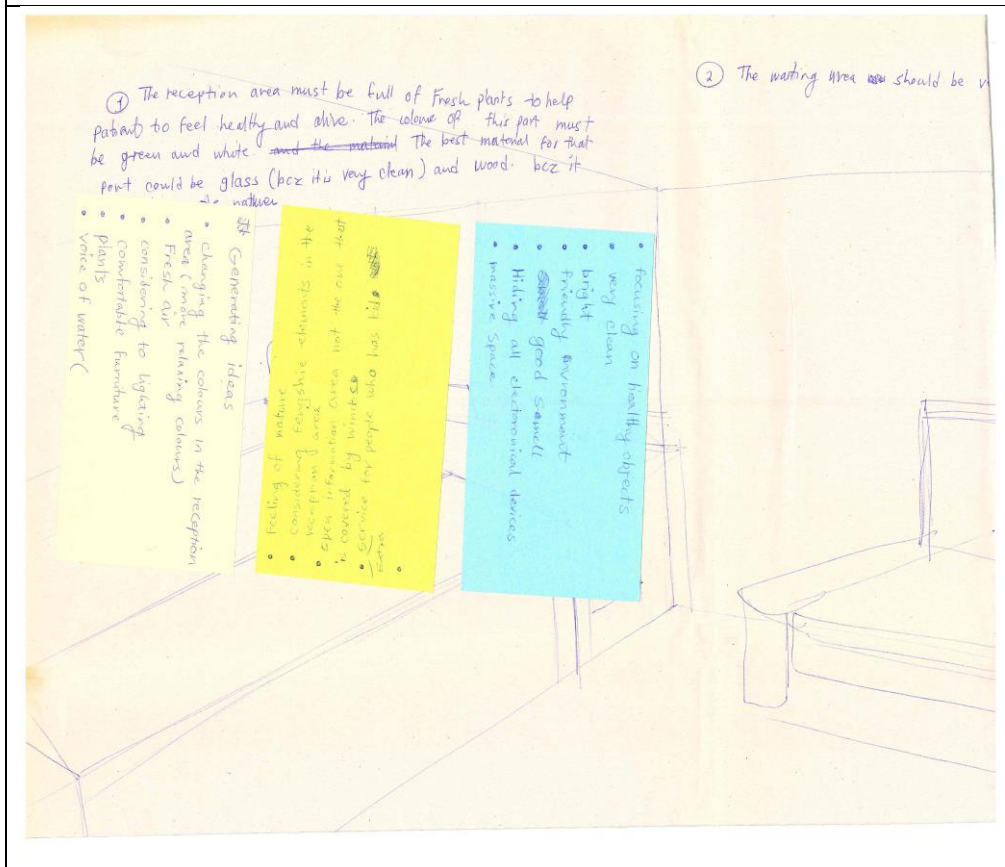 ① The reception area must be full of Fresh plants to help
patient to feel healthy and alive. The colour of this part must
be green and white. and the material The best material for that
part could be glass (bcz it is very clean) and wood. bcz it
nature
② The waiting area should be
Generating ideas
• changing the colours in the reception
area (more relaxing colours)
• Fresh air
• considering to lighting
• comfortable furniture
• plants
• voice of water (
• Feeling of nature
• considering fengshie elements in the
reception area
• open information area not the one that
is covered by
• service for people who has kids
Extra
•
• focusing on healthy objects
• very clean
• bright
• friendly invironment
• good smell
• Hiding all electoronical devices
• massive space